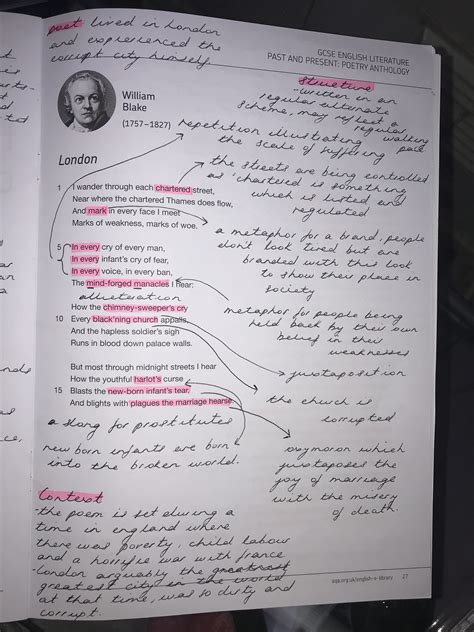 poet lived in London
and experienced the
corrupt city himself
GCSE ENGLISH LITERATURE
PAST AND PRESENT: POETRY ANTHOLOGY
William
Blake
(1757–1827)
structure
-written in an
regular alternate
scheme, may reflect a
regular walking
pace
repetition illustrating
the scale of suffering
London
the streets are being controlled
as 'chartered' is something
which is listed and
regulated
1 I wander through each chartered street,
Near where the chartered Thames does flow,
And mark in every face I meet
Marks of weakness, marks of woe.
a metaphor for a brand, people
don't look tired but are
branded with this look
to show their place in
society
5 In every cry of every man,
In every infant's cry of fear,
In every voice, in every ban,
The mind-forged manacles I hear:
alliteration
How the chimney-sweeper's cry
10 Every black'ning church appalls,
And the hapless soldier's sigh
Runs in blood down palace walls.
metaphor for people being
held back by their own
belief in their
weaknesses
juxtaposition
But most through midnight streets I hear
How the youthful harlot's curse
15 Blasts the new-born infant's tear,
And blights with plagues the marriage hearse.
the church is
corrupted
a slang for prostitutes
new born infants are born
into the broken world.
oxymoron which
juxtaposes the
joy of marriage
with the misery
of death.
Context
- the poem is set during a
time in england where
there was poverty, child labour
and a horrific war with france
-London arguably the greatest
greatest city in the world
at that time, was so dirty and
corrupt.
aqa.org.uk/english-e-library 27